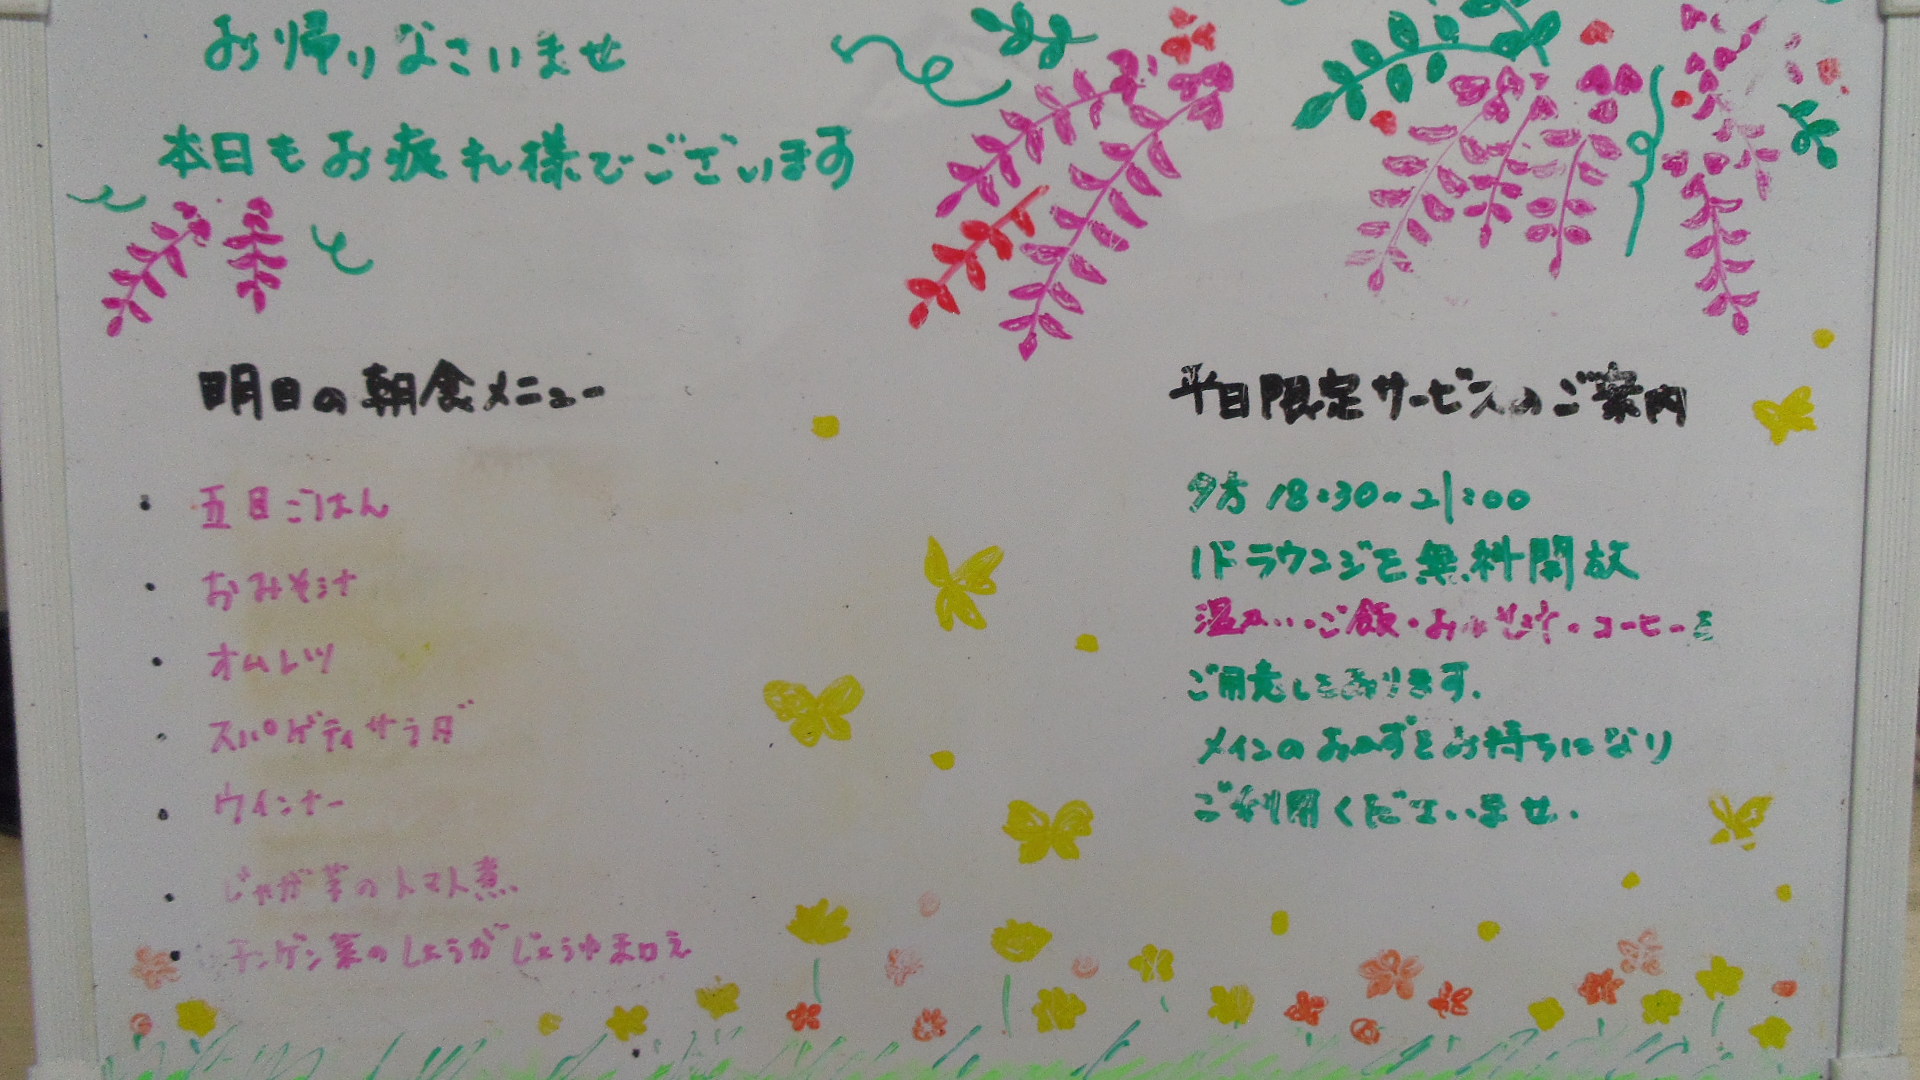 お帰りなさいませ
本日もお疲れ様でございます
明日の朝食メニュー
・五目ごはん
・おみそ汁
・オムレツ
・スパゲティサラダ
・ウインナー
・じゃが芋のトマト煮
・チンゲン菜のしょうがじょうゆ和え
平日限定サービスのご案内
夕方 18:30~21:00
1Fラウンジを無料開放
温かいご飯・おみそ汁・コーヒーを
ご用意しております。
メインのおかずをお持ちになり
ご利用くださいませ。